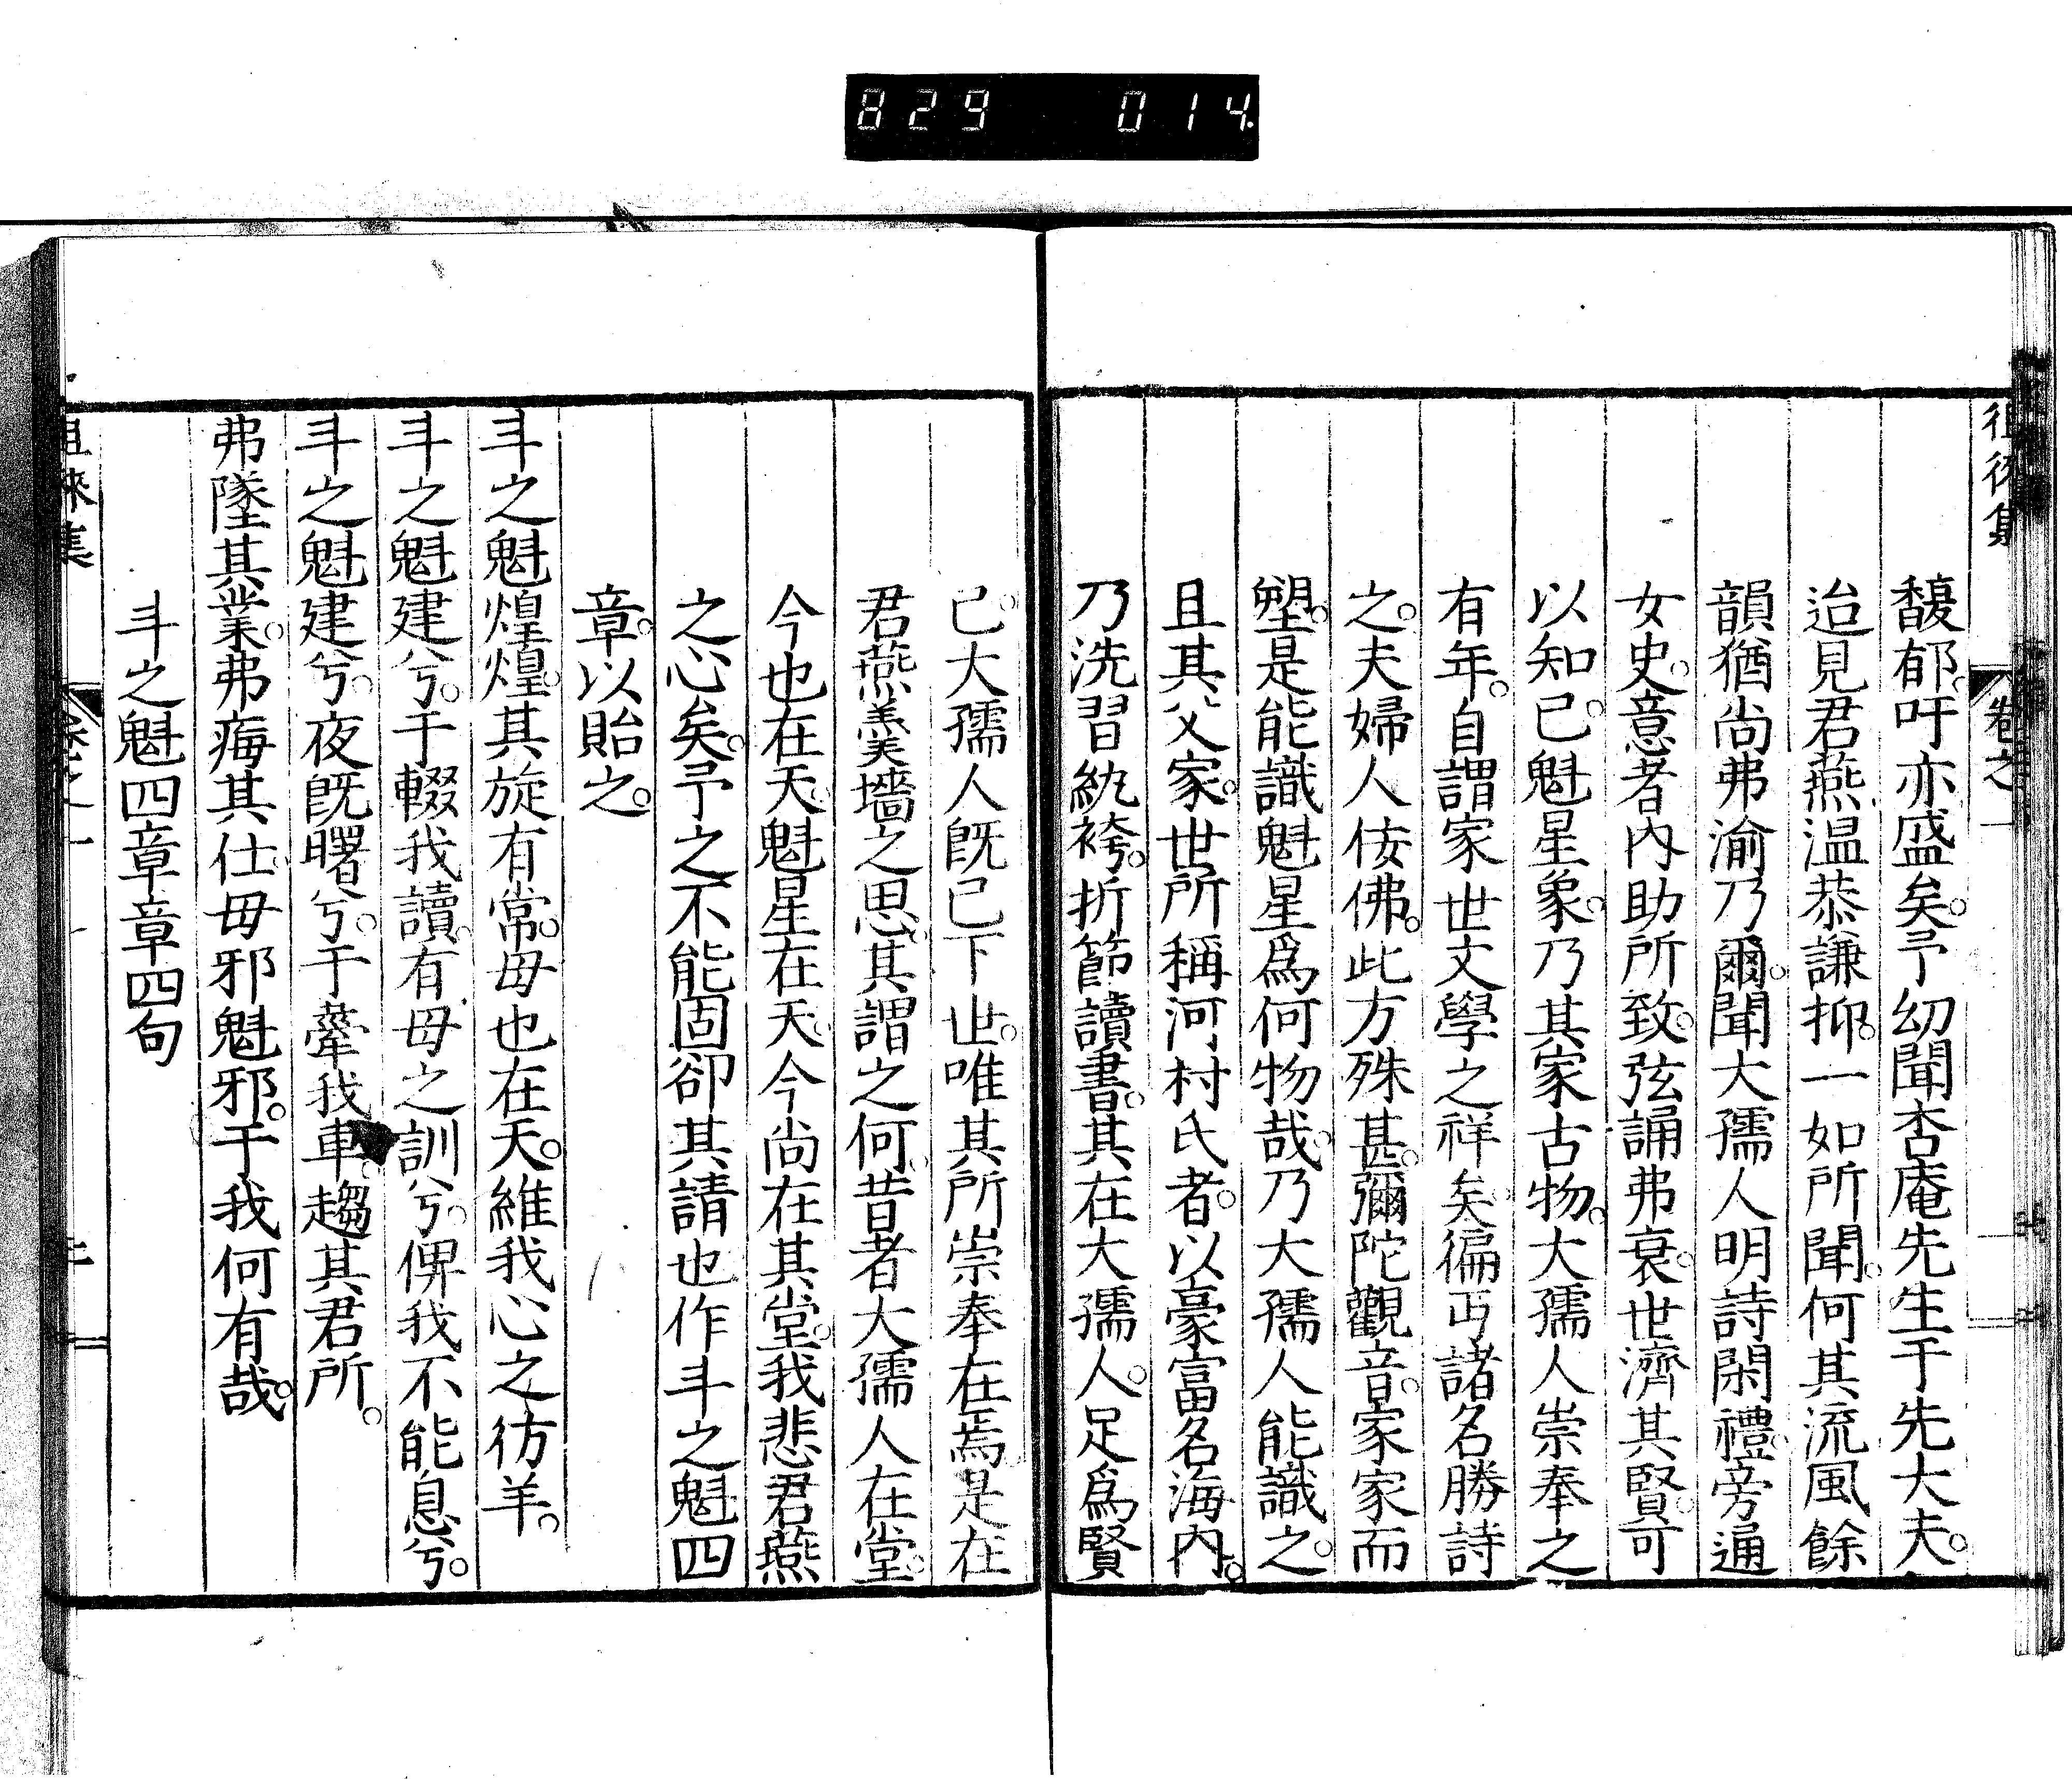 829 014.
徂徠集 卷之一
馥郁。吁亦盛矣。予幼聞杏庵先生于先大夫。
迨見君燕温恭謙抑。一如所聞。何其流風餘
韻猶尚弗渝乃爾。聞大孺人明詩閑禮。旁通
女史。意者內助所致。弦誦弗衰。世濟其賢。可
以知已。已魁星象。乃其家古物。大孺人崇奉之
有年。自謂家世文學之祥矣。徧丐諸名勝詩
之。夫婦人佞佛。此方殊甚。彌陀觀音。家家而
塑。是能識魁星爲何物哉。乃大孺人能識之。
且其父家。世所稱河村氏者。以豪富名海內。
乃洗習紈袴。折節讀書。其在大孺人。足爲賢
已。大孺人既已下世。唯其所崇奉在焉。是在
君燕羹墻之思。其謂之何。昔者大孺人在堂。
今也在天。魁星在天。今尚在其堂。我悲君燕
之心矣。予之不能固卻其請也。作斗之魁四
章。以貽之。
斗之魁煌煌。其旋有常。毋也在天。維我心之彷羊。
斗之魁建兮。于輟我讀。有毋之訓兮。俾我不能息兮。
斗之魁建兮。夜既曙兮。于鞌我車。趨其君所。
弗墜其業。弗痗其仕。毋邪魁邪。于我何有哉。
斗之魁四章章四句
徂徠集 卷之一